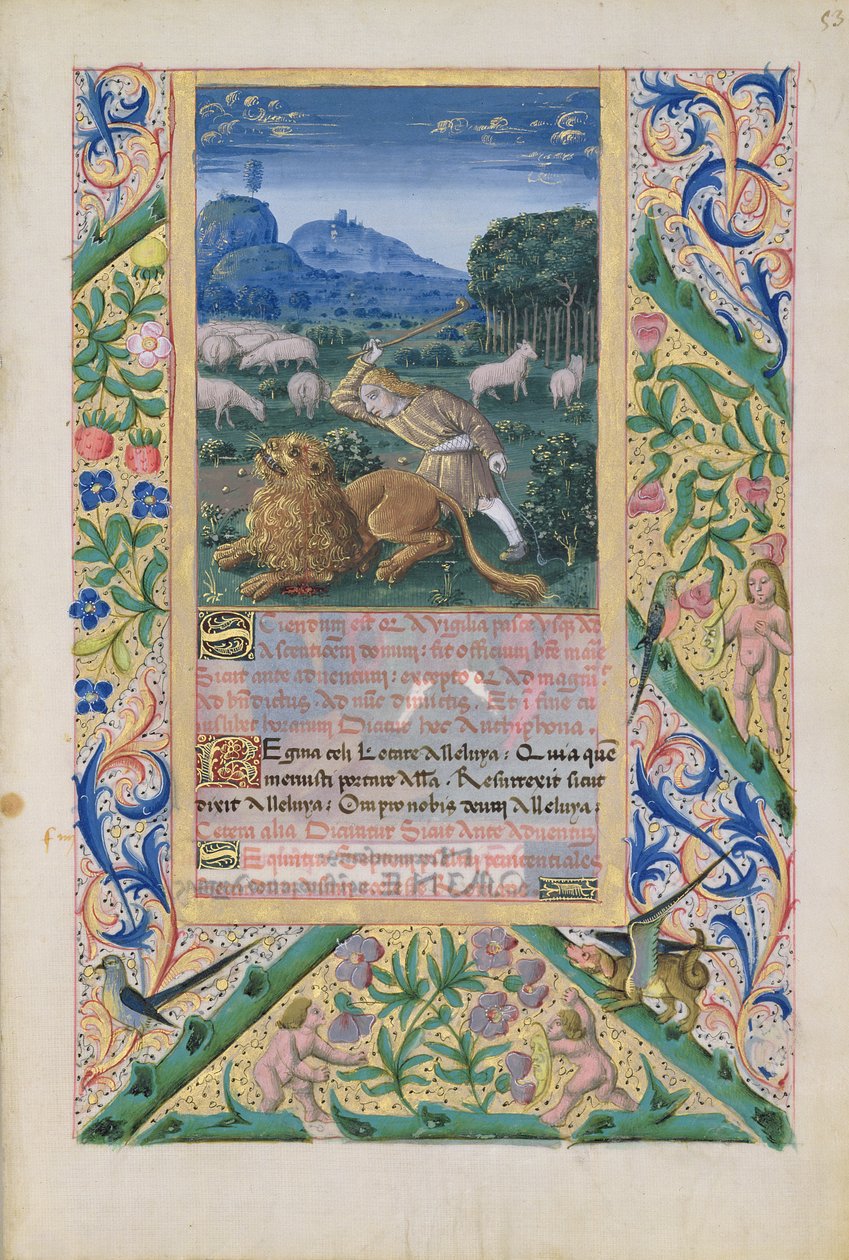 53
Sciendum est qr A vigilia pasce usq Ad
Ascentionem domini: fit officium bte marie
Sicut ante adventum: excepto qr Ad magnit
Ad bndictus. Ad nuc dimictis. Et i fine cu
iuslibet horarum Dicatur hec Anthiphona.
Regina celi Letare Alleluya: Quia que
meruisti portare Alla. Resurrexit sicut
dixit Alleluya: Ora pro nobis deum Alleluya:
Cetera alia Dicuntur Sicut Ante Adventum
penitentiales